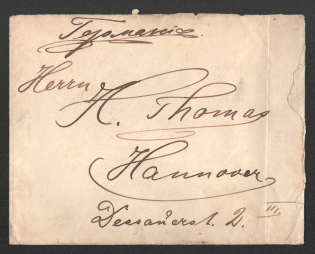 Германія.
Herrn
H. Thomas
Hannover
Dessauerst. 2. III.